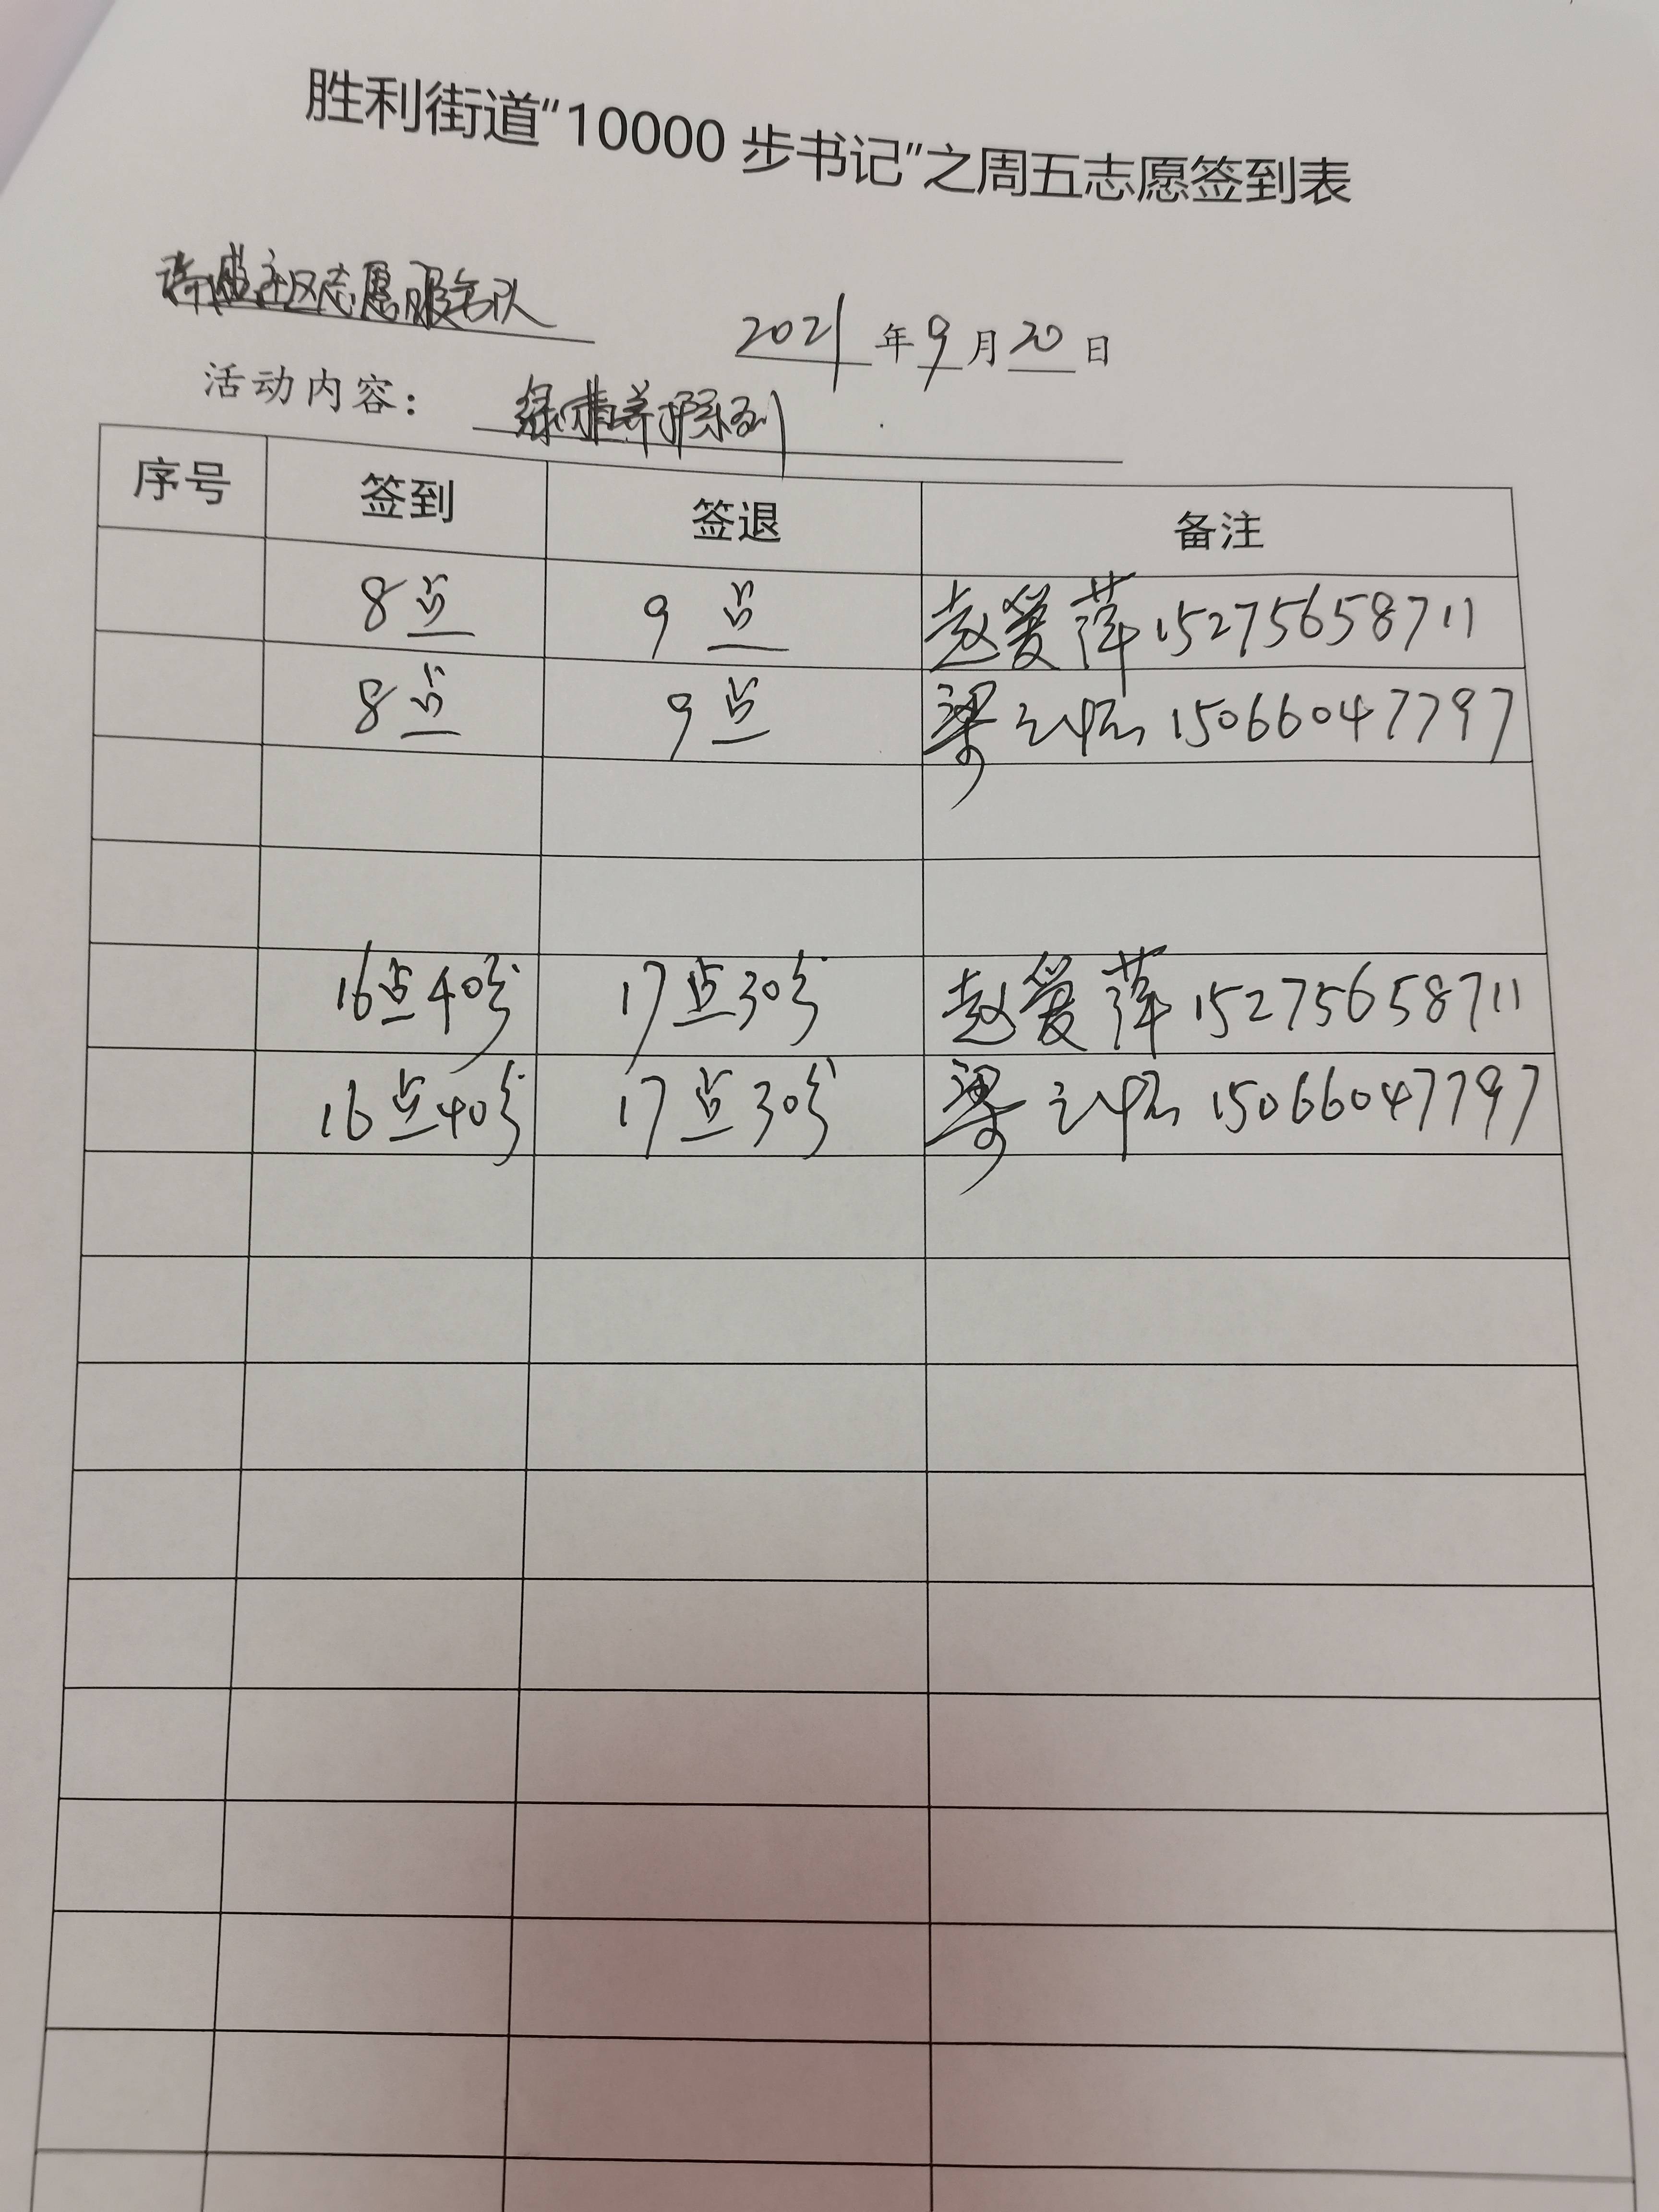 胜利街道“10000 步书记”之周五志愿签到表
社区志愿服务队 2021 年 9 月 20 日
活动内容： 绿植养护系列
序号 签到 签退 备注
8点 9点 赵爱萍 15275658711
8点 9点 梁 15066047797
16点40分 17点30分 赵爱萍 15275658711
16点40分 17点30分 梁 15066047797